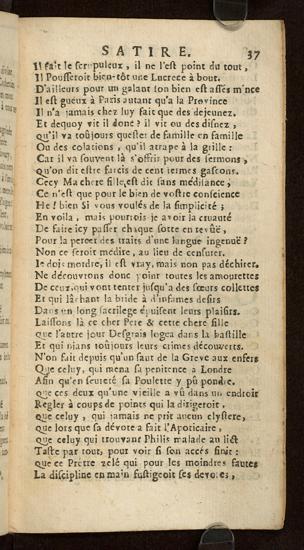 SATIRE. 37
Il fait le scrupuleux, il ne l'est point du tout,
Il Pousseroit bien-tôt une Lucrece à bout.
D'ailleurs pour un galant son bien est assés mince
Il est gueux à Paris autant qu'a la Province
Il n'a jamais chez luy fait que des dejeunez.
Et dequoy vit il donc? il vit ou des disnez,
Qu'il va toûjours quester de famille en famille
Ou des colations, qu'il atrape à la grille:
Car il va souvent là s'offrir pour des sermons,
Qu'on dit estre farcis de cent termes gascons.
Cecy Ma chere fille, est dit sans médisance;
Ce n'est que pour le bien de vostre conscience
He! bien Si vous voulés de la simplicité;
En voila, mais pourrois je avoir la cruauté
De faire icy passer chaque sotte en revüe,
Pour la percer des traits d'une langue ingenuë?
Non ce seroit médire, au lieu de censurer.
Je dois mordre, il est vray, mais non pas déchirer.
Ne découvrons donc point toutes les amourettes
De ceux qui vont tenter jusqu'a des sœurs collettes
Et qui lâchant la bride à d'infames desirs
Dans un long sacrilege épuisent leurs plaisirs.
Laissons là ce cher Pere & cette chere fille
que l'autre jour Desgrais logea dans la bastille
Et qui nians toûjours leurs crimes découverts.
N'on fait depuis qu'un saut de la Greve aux enfers
Que celuy, qui mena sa penitence a Londre
Afin qu'en seureté sa Poulette y pû pondre.
que ces deux qu'une vieille a vû dans un endroit
Regler à coups de points qui la dirigeroit,
que celuy, qui jamais ne prit aucun clystere,
Que lors que sa dévote a fait l'Apoticaire,
Que celuy qui trouvant Philis malade au lict
Taste par tout, pour voir si son accés finit:
que ce Prêtre zelé qui pour les moindres fautes
La discipline en main fustigeoit ses devotes,